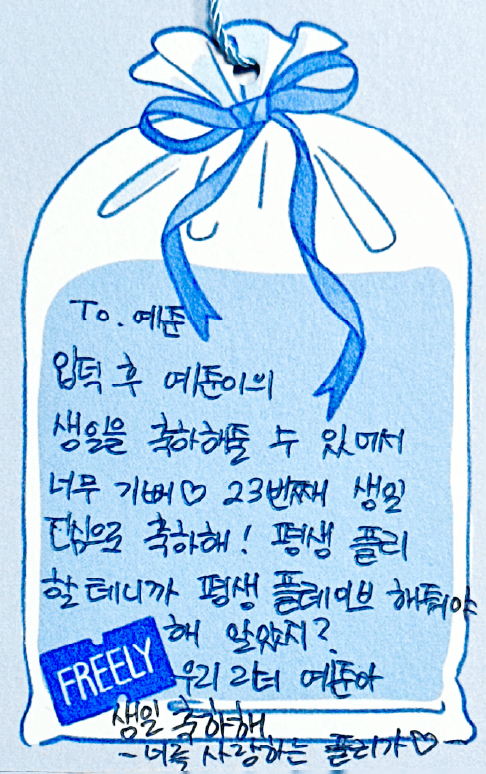 To. 예준
입덕 후 예준이의
생일을 축하해줄 수 있어서
너무 기뻐♡ 23번째 생일
진심으로 축하해! 평생 플리
할테니까 평생 플레이브 해줘야
해 알았지?
FREELY
우리 리더 예준아
생일 축하해
-너를 사랑하는 플리가♡-